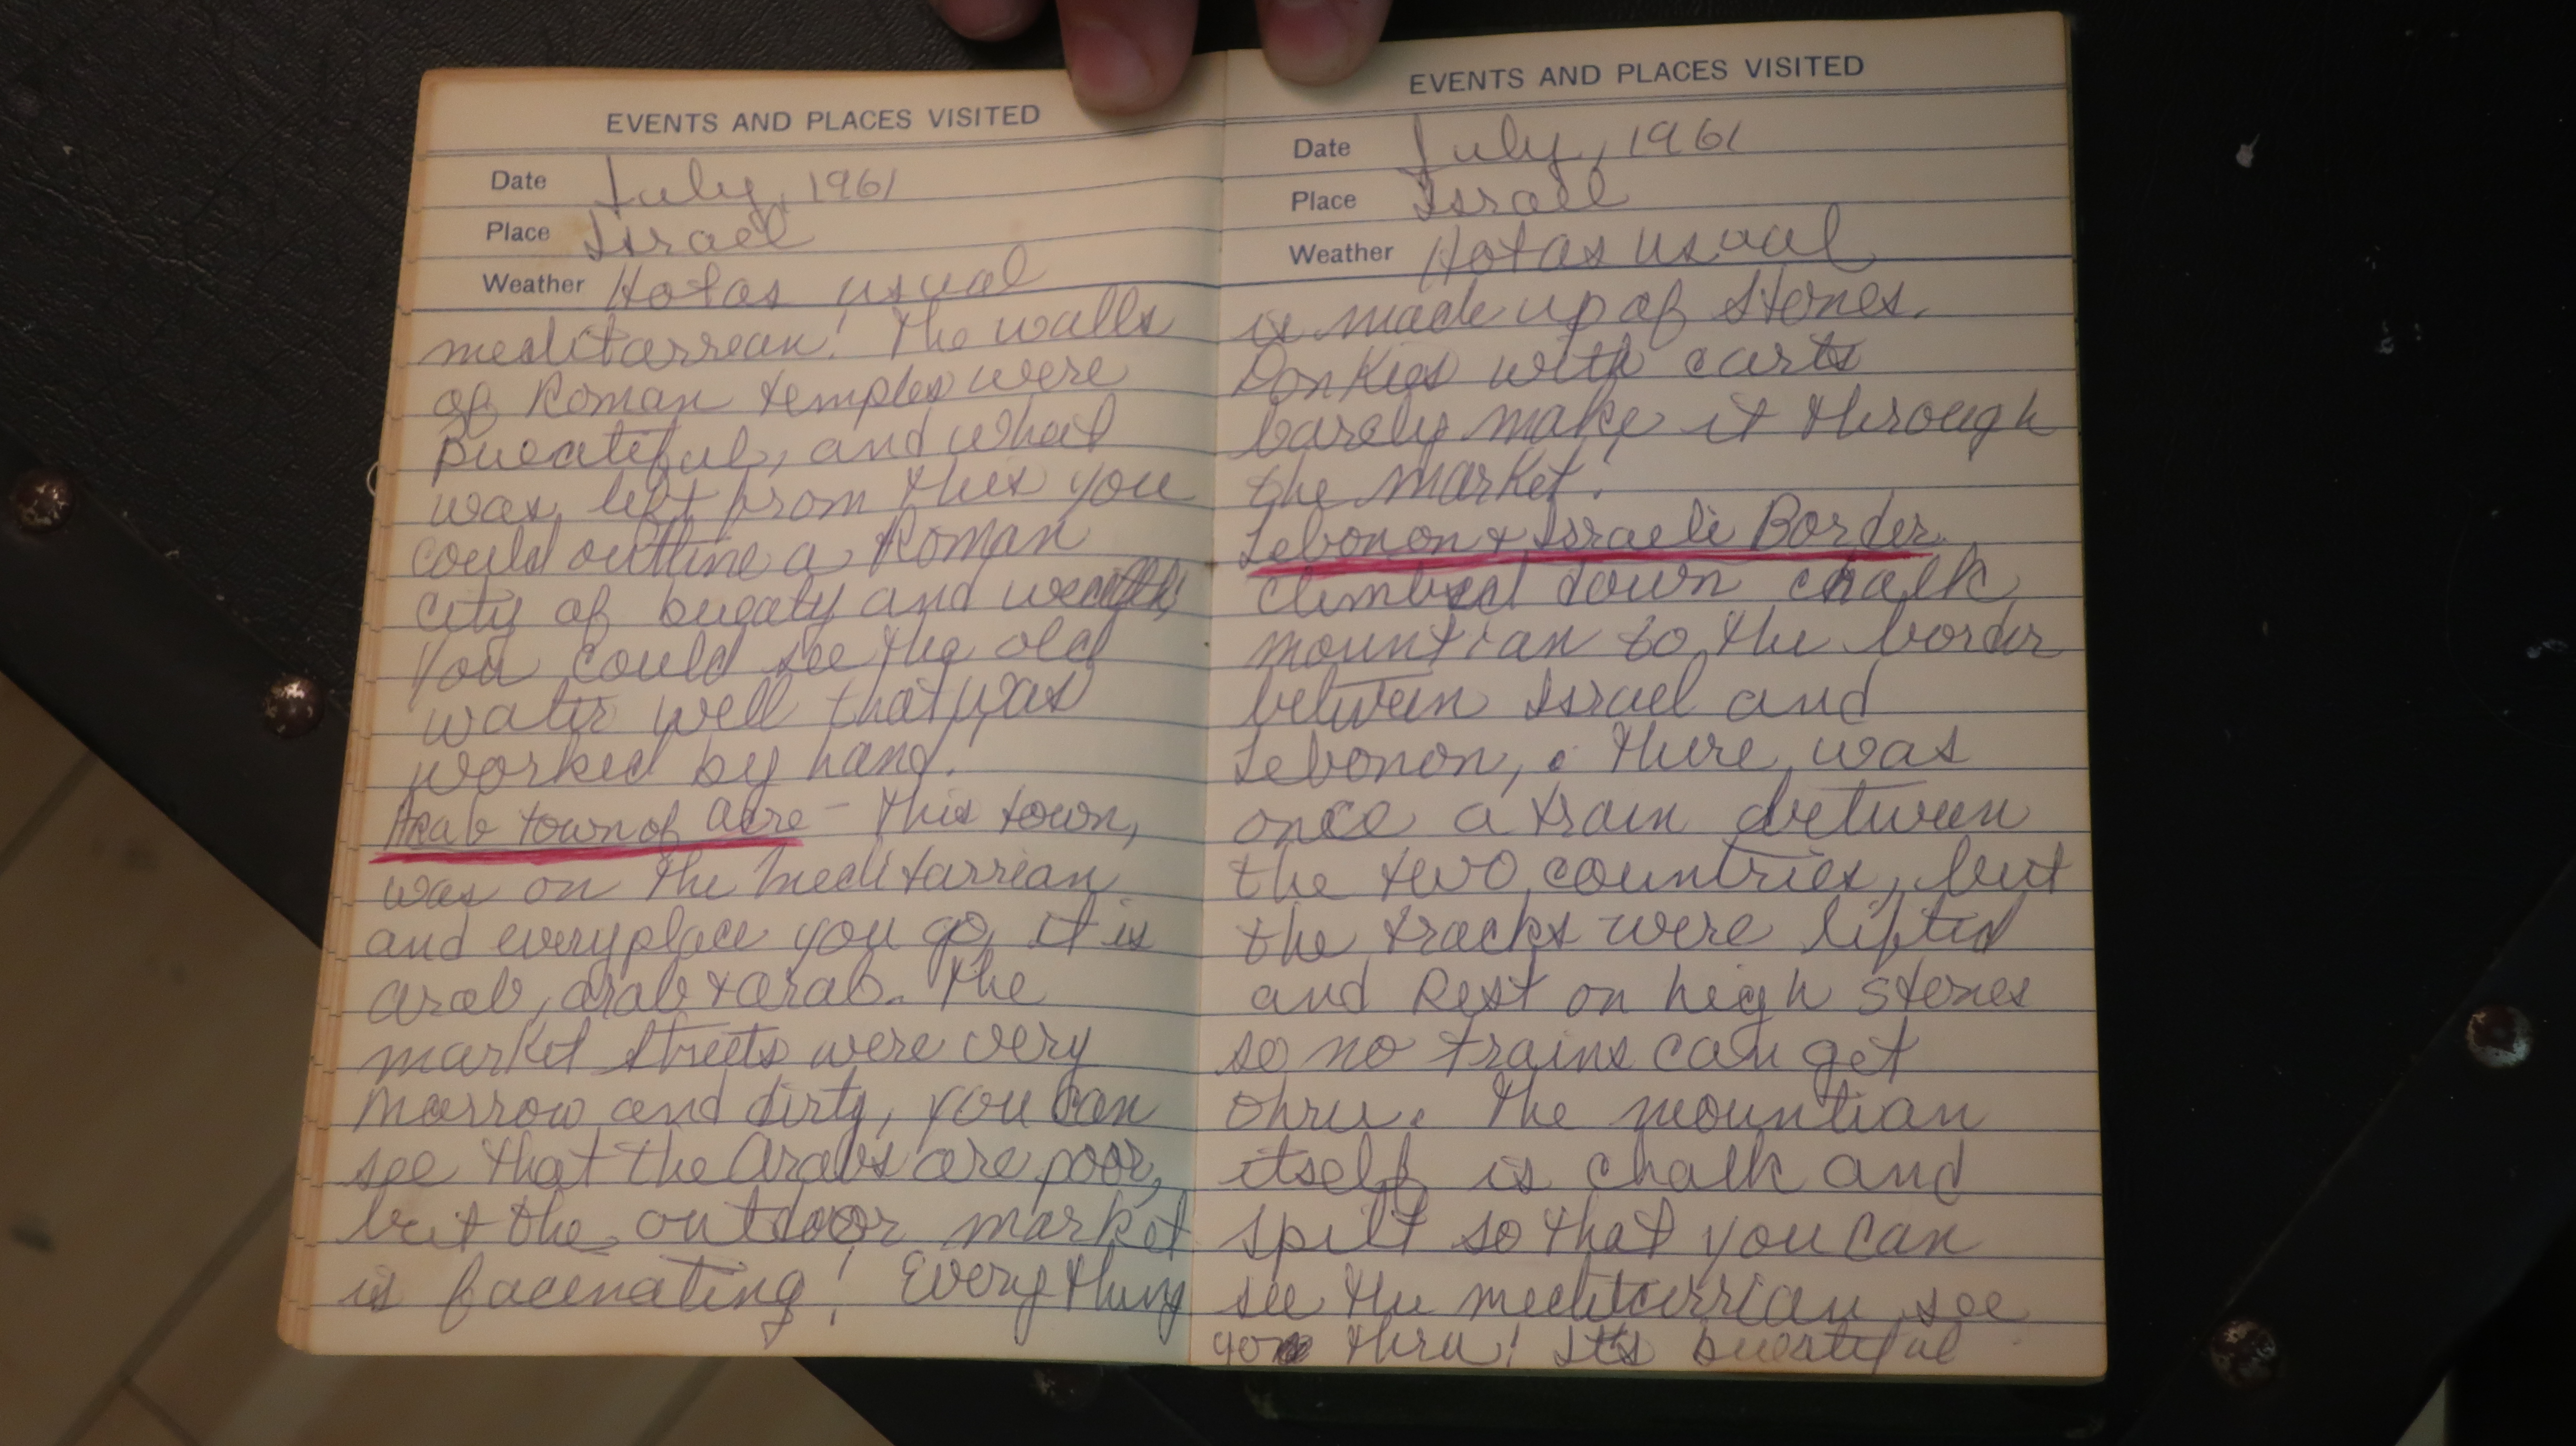 EVENTS AND PLACES VISITED
Date July, 1961
Place Israel
Weather Hot as usual
meditarrean! The walls
of Roman temples were
bueatiful, and what
was left from this you
could outline a Roman
city of bueaty and wealth
You could see the old
water well that was
worked by hand!
Arab town of Acre - This town,
was on the meditarrian
and everyplace you go, it is
arab, arab & arab. The
market streets were very
narrow and dirty, you can
see that the Arabs are poor,
but the outdoor market
is facenating! Everything
EVENTS AND PLACES VISITED
Date July, 1961
Place Israel
Weather Hot as usual
is made up of stones.
Donkies with carts
barely make it through
the market!
Lebonon & Israeli Border
climbed down chalk
mountian to the border
between Israel and
Lebonon, . There was
once a train between
the two countries, but
the tracks were lifted
and Rest on high stones
so no trains can get
thru. The mountian
itself is chalk and
spilt so that you can
see the meditarrian see
go thru! It's bueatiful